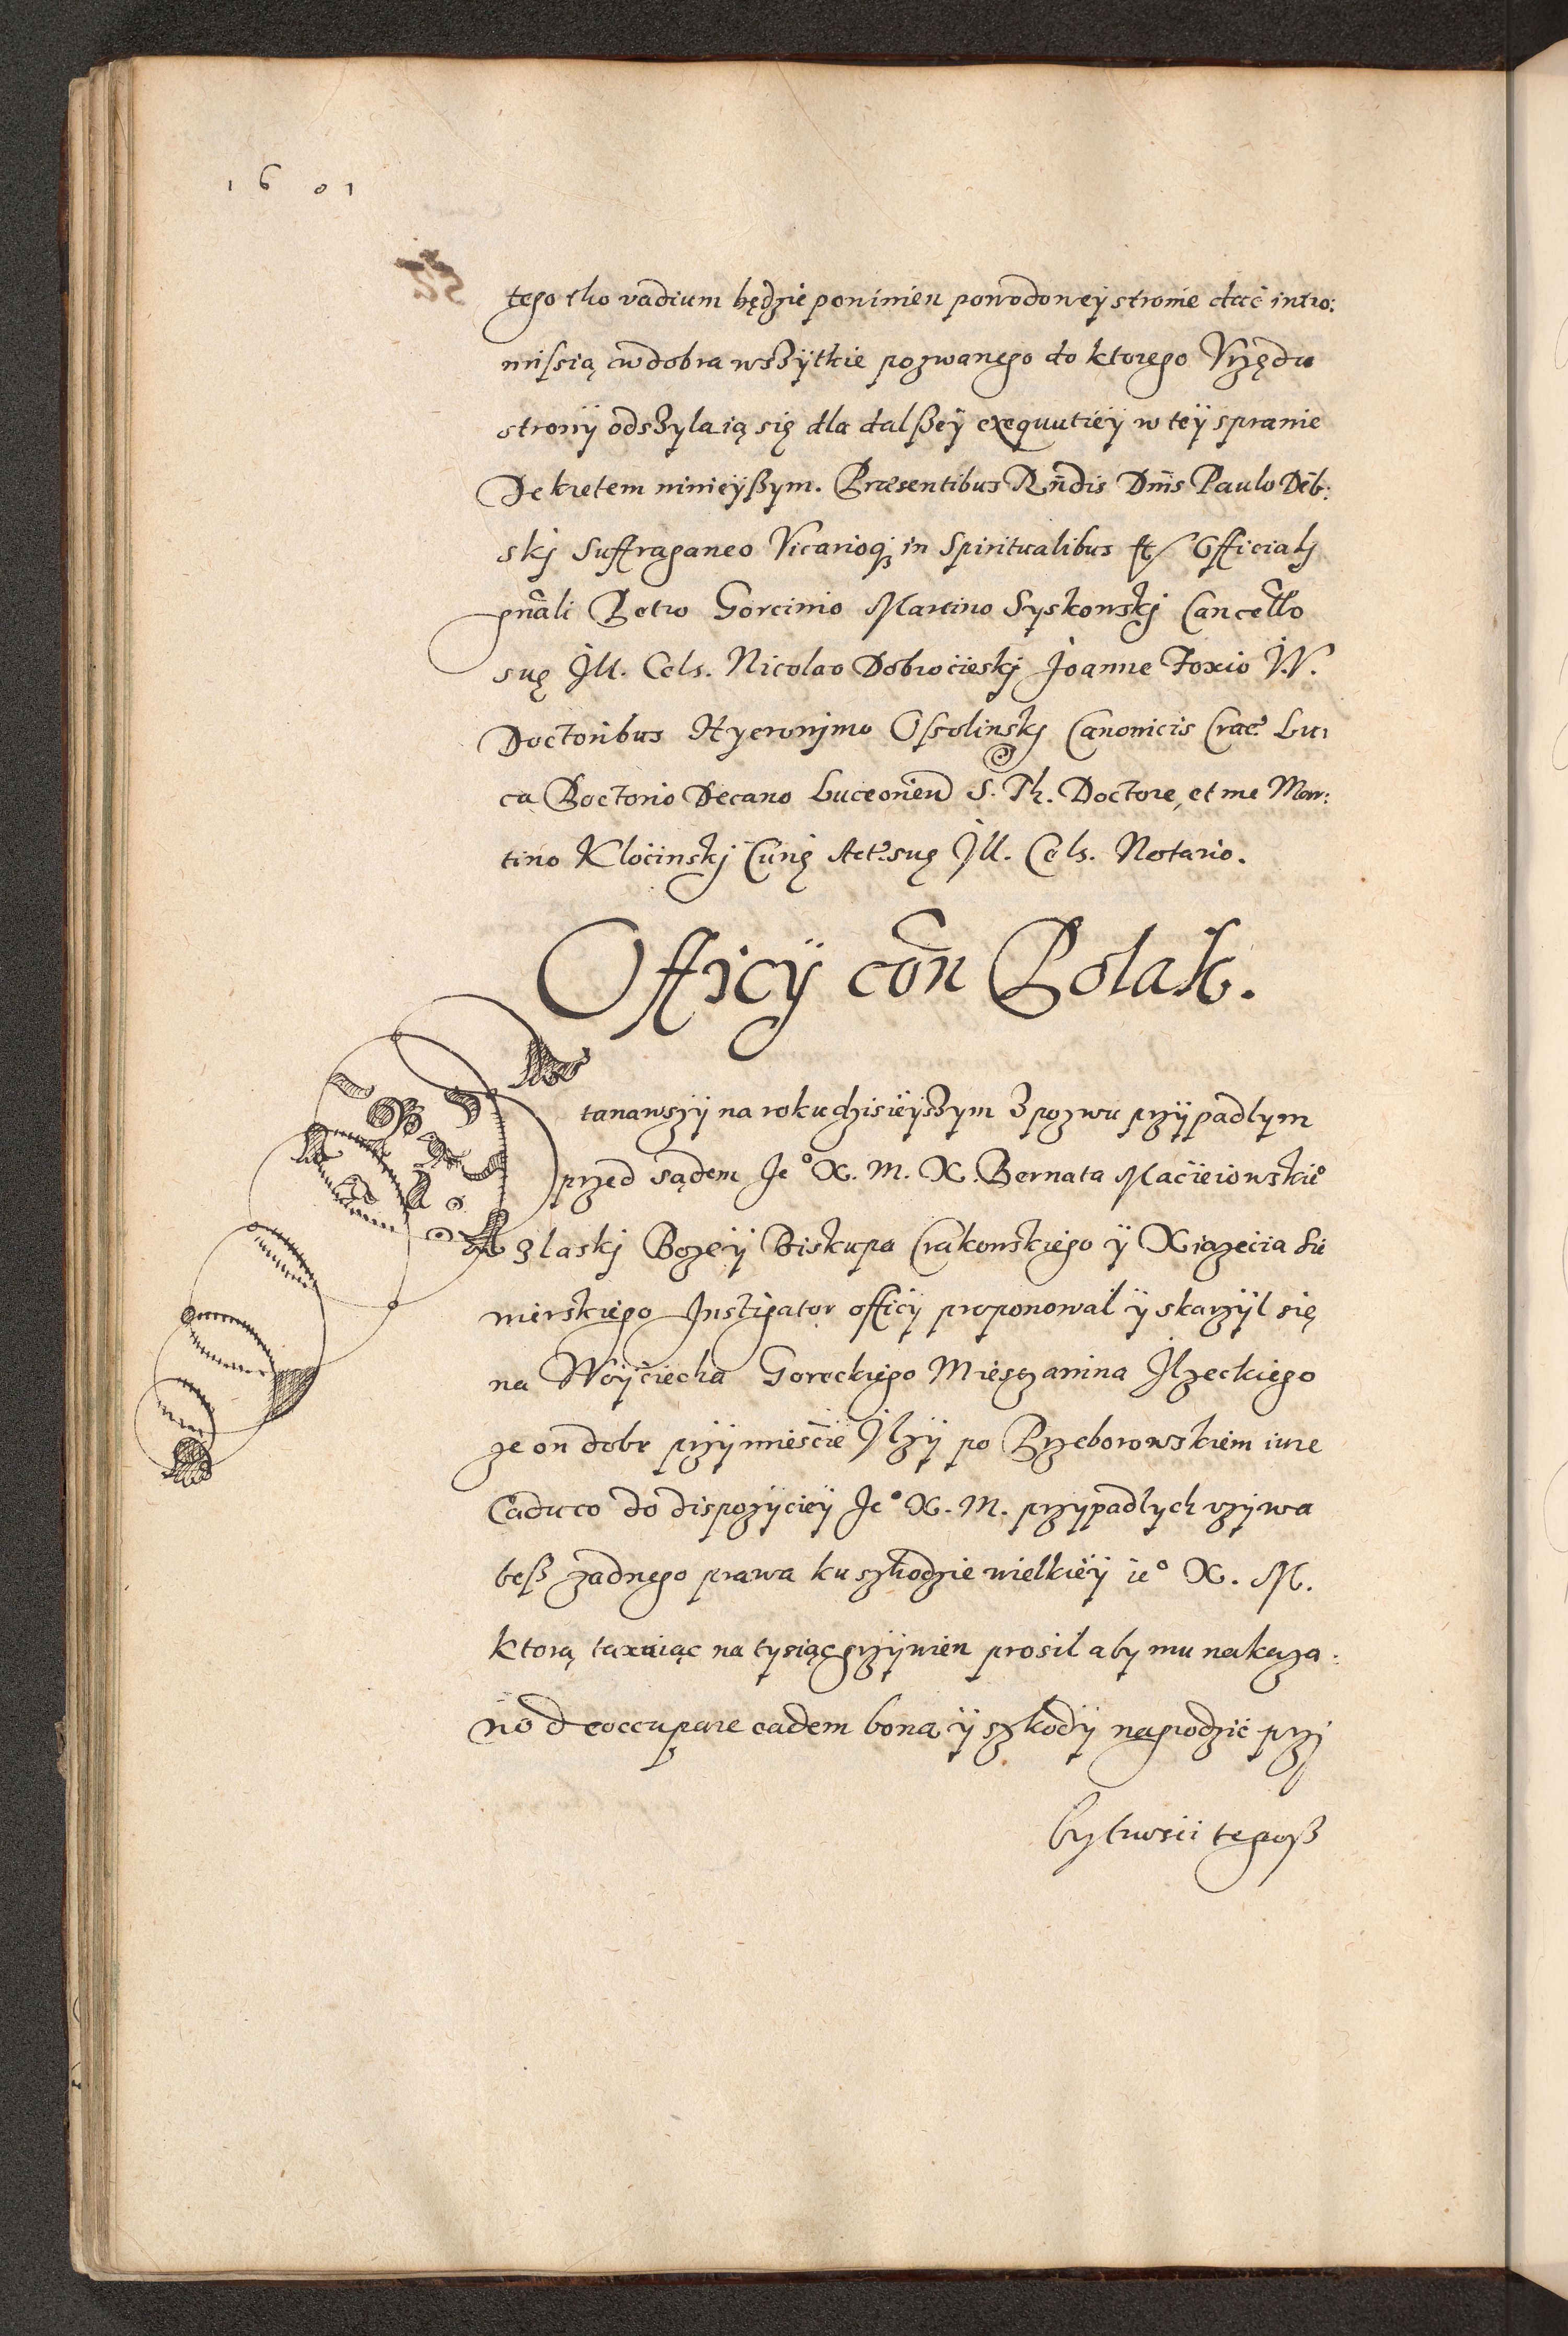 1601
tego tho vadium będzie powinien powodowey stronie dać intro:
missią w dobra wszytkie pozwanego do ktorego Vrzędu
strony odszylaią się dla dalßey exequutiey w tey sprawie
Dekretem ninieyßym. Præsentibus Rndis Dnis Paulo Dęb:
skj Suffraganeo Vicarioq; in Spiritualibus et Officialj
gnãli Petro Gorcinio Martino Syskowskj Cancello
suę Jll. Cels. Nicolao Dobrocieskj Joanne Foxio J.V.
Doctoribus Hyeronjmo Ossolinskj Canonicis Crac. Lu:
ca Doctorio Decano Luceorien S. Th. Doctore, et me Mar:
tino Klocinskj Curię Act. suę Jll. Cels. Notario.
Officÿ con Polak.
Stanawszy na roku dzisieyszym z pozwu przypadlym
przed sądem Je° X. M. X. Bernata Macieiowskie°
z laskj Bozey Biskupa Crakowskiego ÿ Xiązecia Sie
wierskiego Instigator officÿ proponowal ÿ skarzyl się
na Woyciecha Goreckiego Miesczanina Jlzeckiego
ze on dobr przy mieście Jlzy po Przeborowskiem iure
Caduco do dispozyciey Je° X. M. przypadlych vzywa
beß zadnego prawa ku szkodzie wielkiey ie° X. M.
ktorą taxuiąc na tysiąc grzywien prosil aby mu nakaza:
no deoccupare eadem bona ÿ szkody nagrodzić przj
bytnosci tegoß